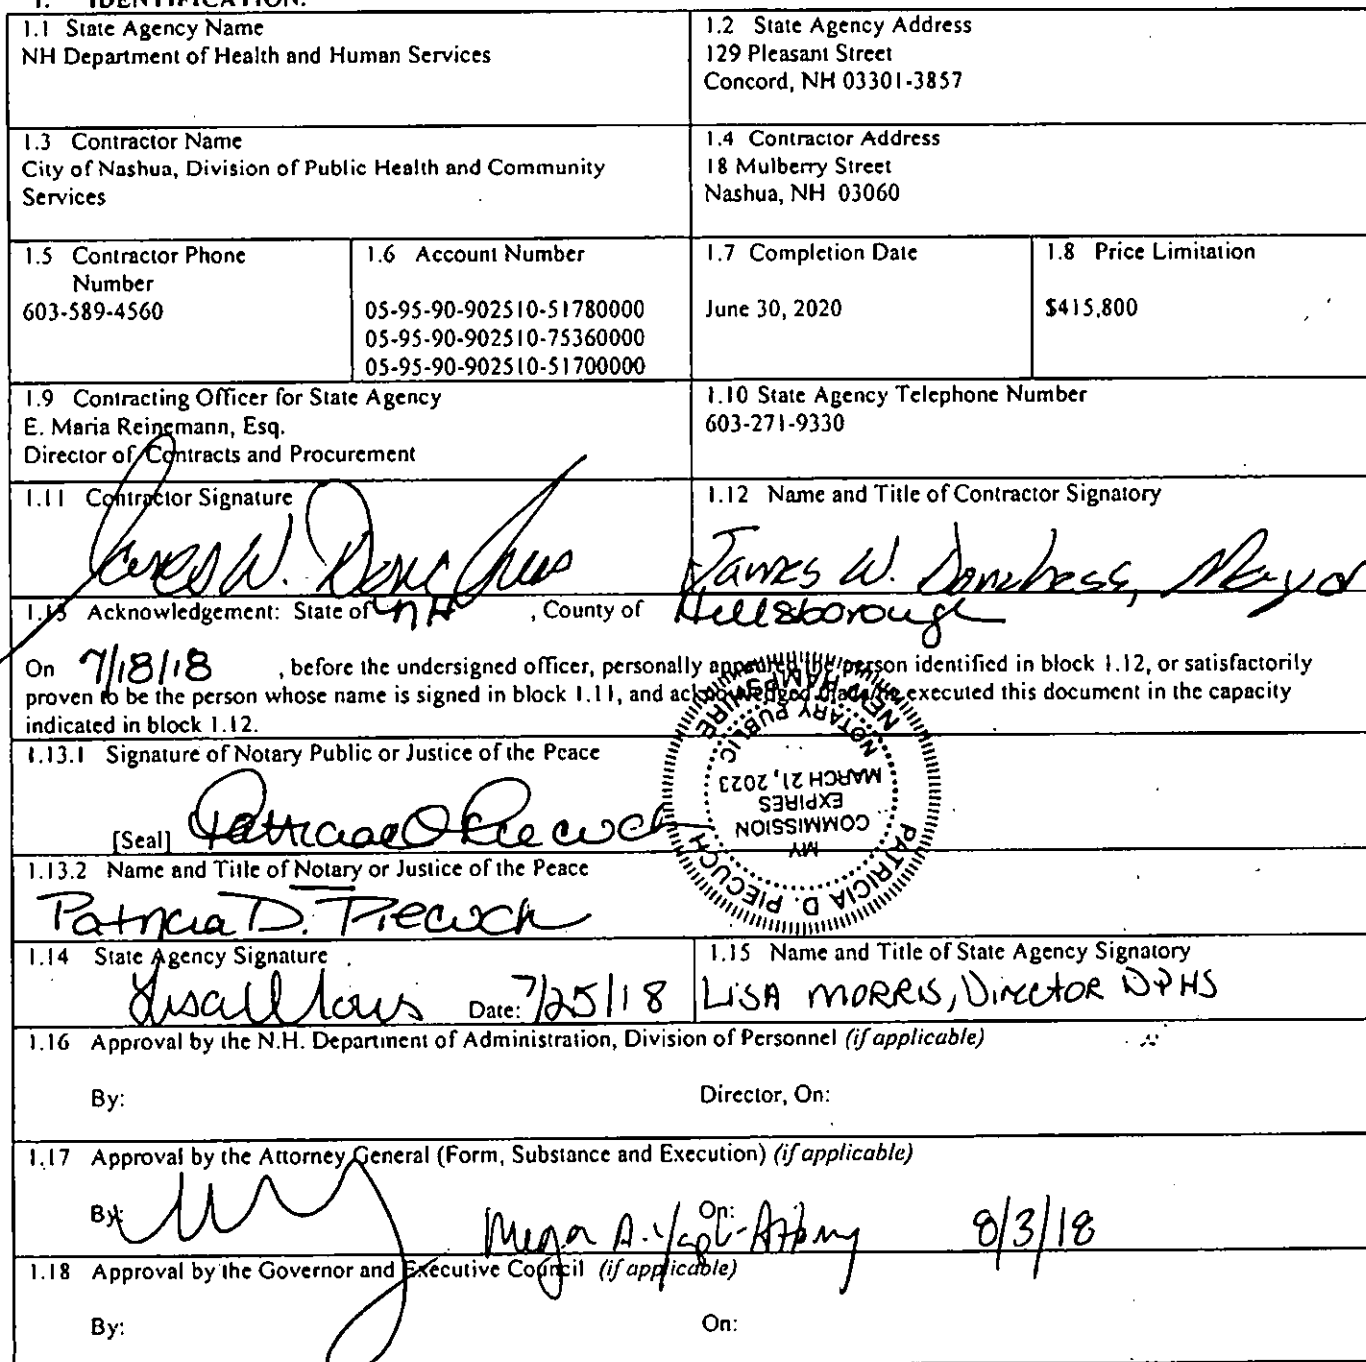 1. IDENTIFICATION.
1.1 State Agency Name
NH Department of Health and Human Services
1.2 State Agency Address
129 Pleasant Street
Concord, NH 03301-3857
1.3 Contractor Name
City of Nashua, Division of Public Health and Community
Services
1.4 Contractor Address
18 Mulberry Street
Nashua, NH 03060
1.5 Contractor Phone
Number
603-589-4560
1.6 Account Number
05-95-90-902510-51780000
05-95-90-902510-75360000
05-95-90-902510-51700000
1.7 Completion Date
June 30, 2020
1.8 Price Limitation
$415,800
1.9 Contracting Officer for State Agency
E. Maria Reinemann, Esq.
Director of Contracts and Procurement
1.10 State Agency Telephone Number
603-271-9330
1.11 Contractor Signature
James W. Donchess
1.12 Name and Title of Contractor Signatory
James W. Donchess, Mayor
1.13 Acknowledgement: State of NH, County of Hillsborough
On 7/18/18, before the undersigned officer, personally appeared the person identified in block 1.12, or satisfactorily
proven to be the person whose name is signed in block 1.11, and acknowledged that s/he executed this document in the capacity
indicated in block 1.12.
1.13.1 Signature of Notary Public or Justice of the Peace
[Seal] Patricia D. Piecuch
PATRICIA D. PIECUCH
MY
COMMISSION
EXPIRES
MARCH 21, 2023
NOTARY PUBLIC
NEW HAMPSHIRE
1.13.2 Name and Title of Notary or Justice of the Peace
Patricia D. Piecuch
1.14 State Agency Signature
Lisa Morris Date: 7/25/18
1.15 Name and Title of State Agency Signatory
LISA MORRIS, Director DPHS
1.16 Approval by the N.H. Department of Administration, Division of Personnel (if applicable)
By: Director, On:
1.17 Approval by the Attorney General (Form, Substance and Execution) (if applicable)
By: On:
Megan A. - Attorney 8/3/18
1.18 Approval by the Governor and Executive Council (if applicable)
By: On: